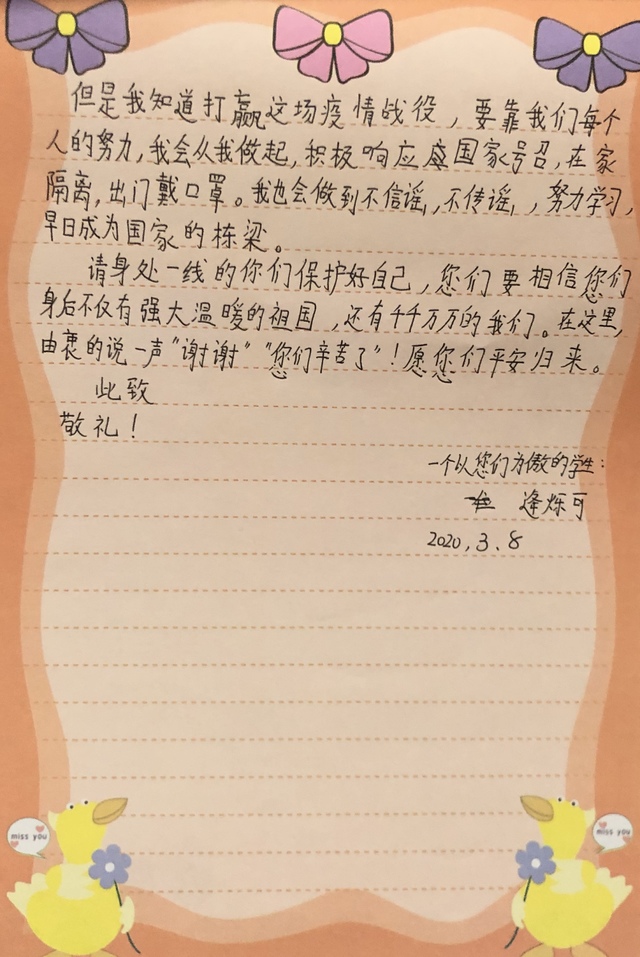 但是我知道打赢这场疫情战役，要靠我们每个
人的努力,我会从我做起,积极响应国家号召,在家
隔离,出门戴口罩。我也会做到不信谣,不传谣,努力学习,
早日成为国家的栋梁。
请身处一线的你们保护好自己,您们要相信您们
身后不仅有强大温暖的祖国,还有千千万万的我们。在这里,
由衷的说一声"谢谢""您们辛苦了"!愿您们平安归来。
此致
敬礼!
一个以您们为傲的学生:
逄烁可
2020.3.8
miss you
miss you